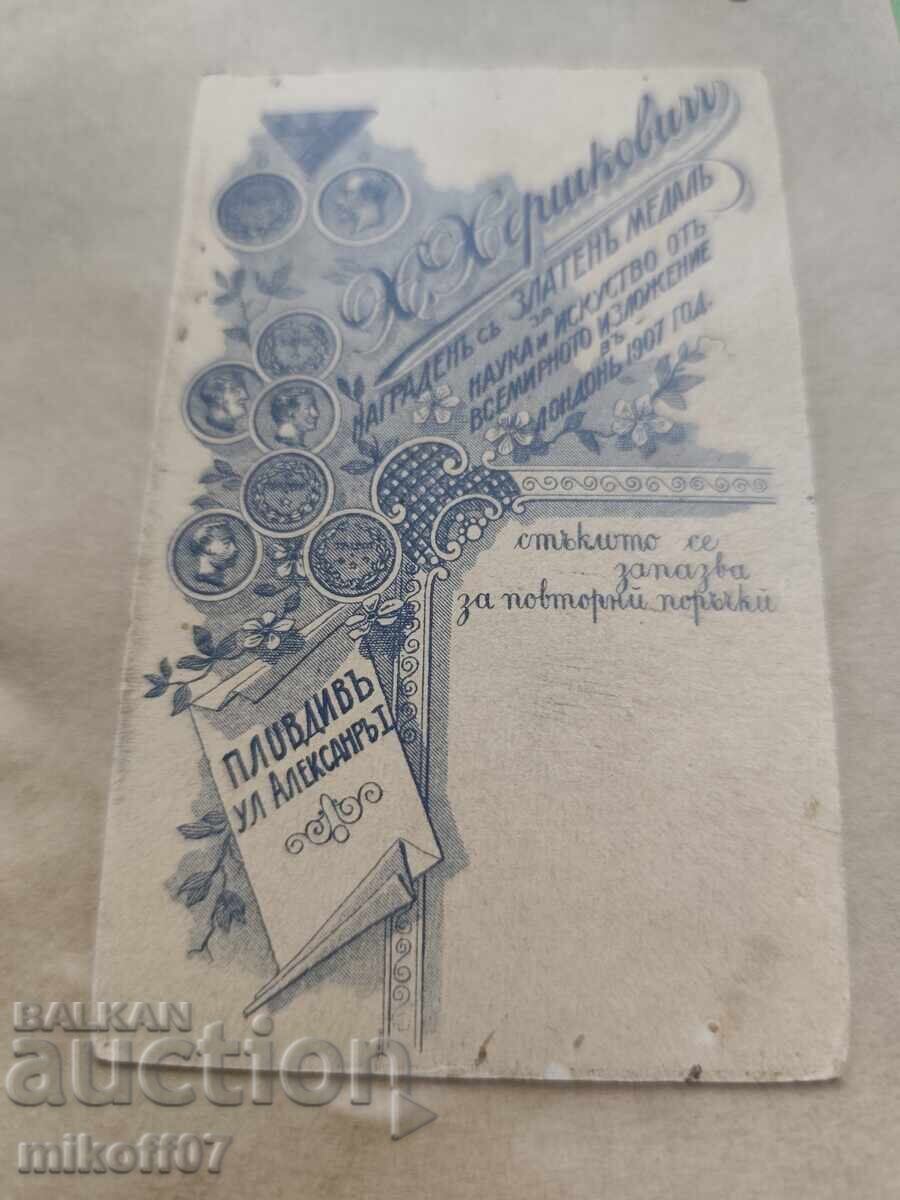 Х. Хершковичъ
НАГРАДЕНЪ СЪ ЗЛАТЕНЪ МЕДАЛЪ
ЗА
НАУКА И ИСКУСТВО ОТЪ
ВСЕМИРНОТО ИЗЛОЖЕНИЕ
ВЪ
ЛОНДОНЪ 1907 ГОД.
стъклто се
запазва
за повторни поръчки
ПЛОВДИВЪ
УЛ АЛЕКСАНРЪ I
BALKAN
auction
mikoff07